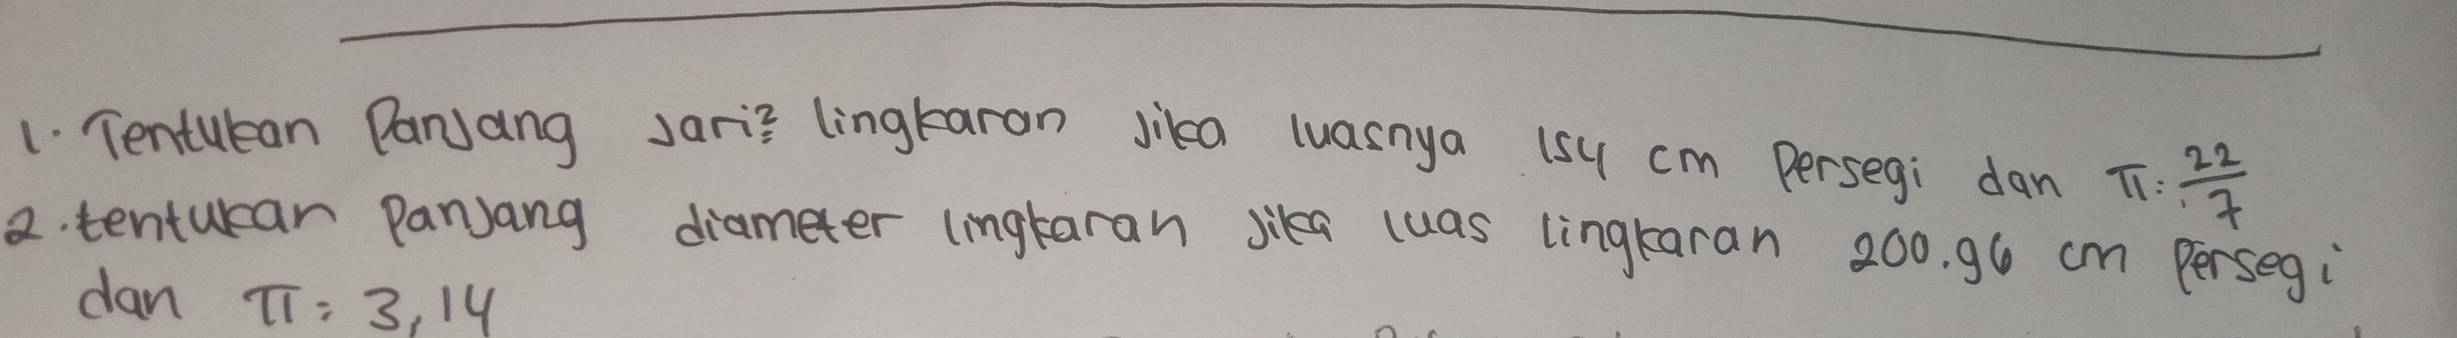 1. Tentukan Panjang jari² lingkaran jika luasnya 154 cm Persegi dan π = 22/7
2. tentukan Panjang diameter lingkaran jika luas lingkaran 200.96 cm Persegi
dan π = 3,14